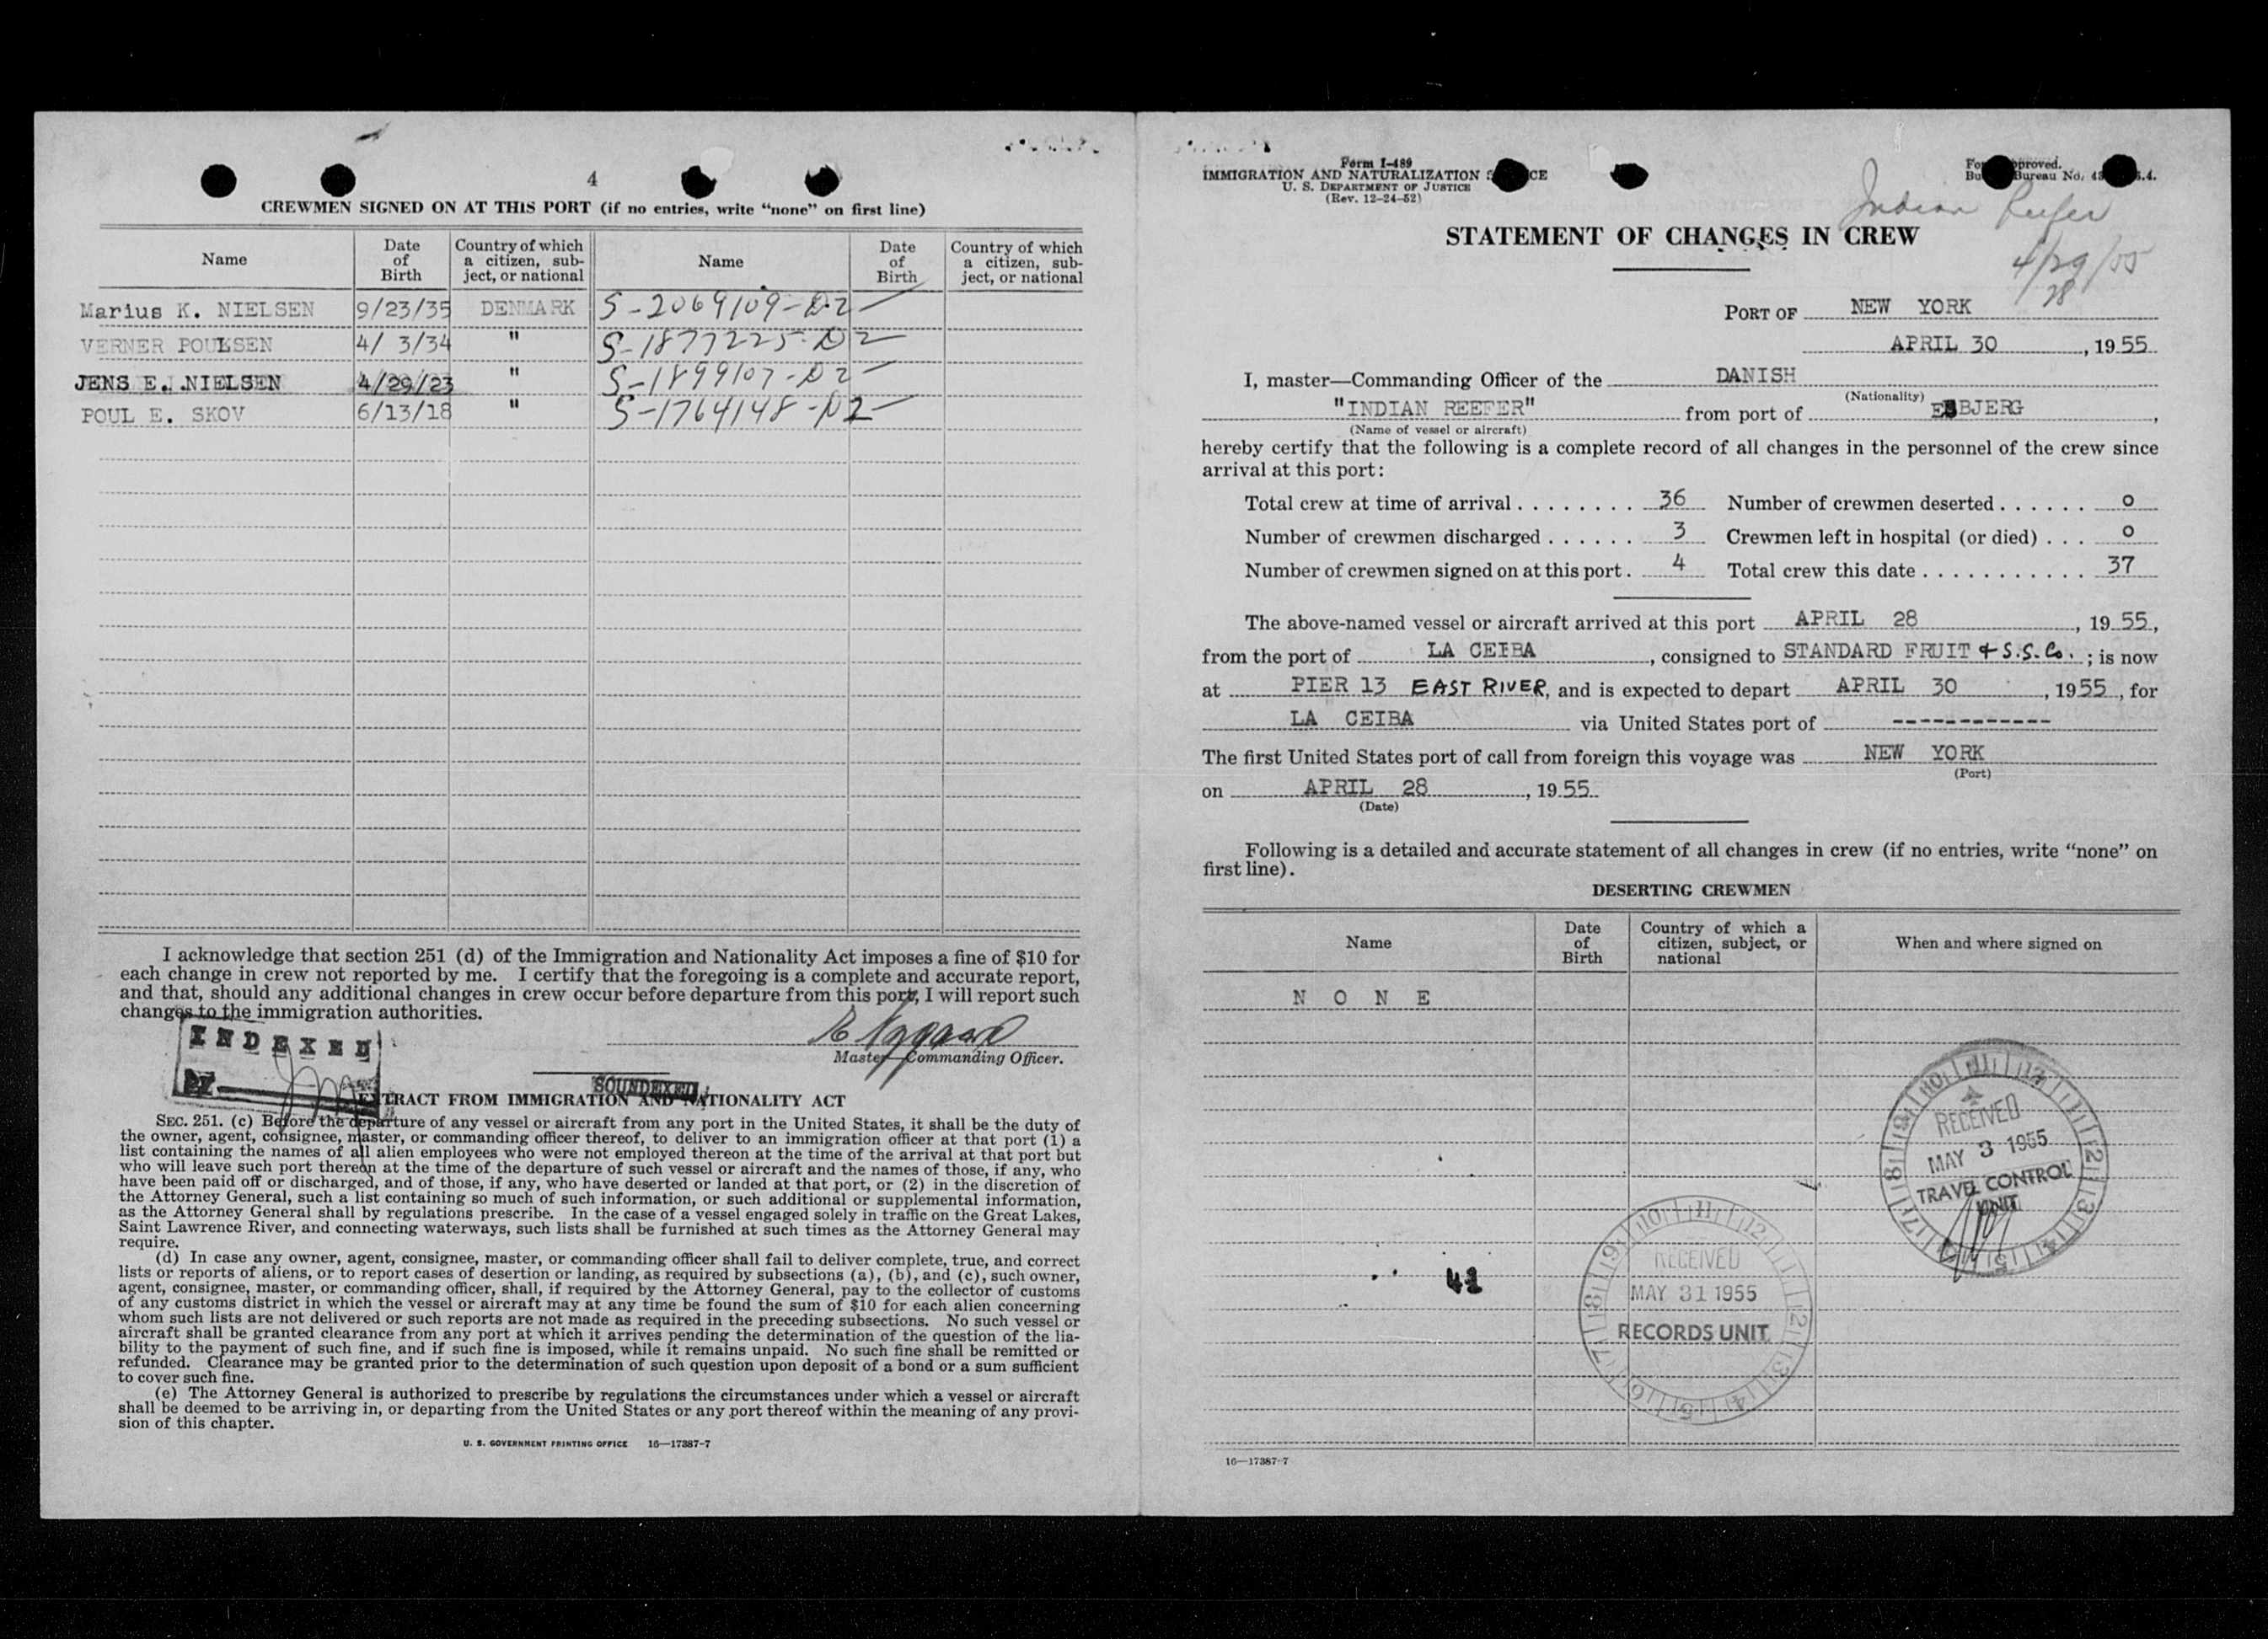 4
CREWMEN SIGNED ON AT THIS PORT (if no entries, write "none" on first line)
Name Date of Birth Country of which a citizen, subject, or national Name Date of Birth Country of which a citizen, subject, or national
Marius K. NIELSEN 9/23/35 DENMARK S-2069109-D2
VERNER POULSEN 4/ 3/34 " S-1877225-D2
JENS E. NIELSEN 4/29/23 " S-1899107-D2
POUL E. SKOV 6/13/18 " S-1764148-D2
I acknowledge that section 251 (d) of the Immigration and Nationality Act imposes a fine of $10 for
each change in crew not reported by me. I certify that the foregoing is a complete and accurate report,
and that, should any additional changes in crew occur before departure from this port, I will report such
changes to the immigration authorities.
INDEXED
BY
Master—Commanding Officer.
SOUNDEXED
EXTRACT FROM IMMIGRATION AND NATIONALITY ACT
SEC. 251. (c) Before the departure of any vessel or aircraft from any port in the United States, it shall be the duty of
the owner, agent, consignee, master, or commanding officer thereof, to deliver to an immigration officer at that port (1) a
list containing the names of all alien employees who were not employed thereon at the time of the arrival at that port but
who will leave such port thereon at the time of the departure of such vessel or aircraft and the names of those, if any, who
have been paid off or discharged, and of those, if any, who have deserted or landed at that port, or (2) in the discretion of
the Attorney General, such a list containing so much of such information, or such additional or supplemental information,
as the Attorney General shall by regulations prescribe. In the case of a vessel engaged solely in traffic on the Great Lakes,
Saint Lawrence River, and connecting waterways, such lists shall be furnished at such times as the Attorney General may
require.
(d) In case any owner, agent, consignee, master, or commanding officer shall fail to deliver complete, true, and correct
lists or reports of aliens, or to report cases of desertion or landing, as required by subsections (a), (b), and (c), such owner,
agent, consignee, master, or commanding officer, shall, if required by the Attorney General, pay to the collector of customs
of any customs district in which the vessel or aircraft may at any time be found the sum of $10 for each alien concerning
whom such lists are not delivered or such reports are not made as required in the preceding subsections. No such vessel or
aircraft shall be granted clearance from any port at which it arrives pending the determination of the question of the lia-
bility to the payment of such fine, and if such fine is imposed, while it remains unpaid. No such fine shall be remitted or
refunded. Clearance may be granted prior to the determination of such question upon deposit of a bond or a sum sufficient
to cover such fine.
(e) The Attorney General is authorized to prescribe by regulations the circumstances under which a vessel or aircraft
shall be deemed to be arriving in, or departing from the United States or any port thereof within the meaning of any provi-
sion of this chapter.
U. S. GOVERNMENT PRINTING OFFICE 16—17387-7
Form I-489
IMMIGRATION AND NATURALIZATION
U. S. DEPARTMENT OF JUSTICE
(Rev. 12-24-52)
Bureau No.
Indian Reefer
4/29/55
28
STATEMENT OF CHANGES IN CREW
PORT OF NEW YORK
APRIL 30, 1955
I, master—Commanding Officer of the DANISH
(Nationality)
"INDIAN REEFER" from port of ESBJERG,
(Name of vessel or aircraft)
hereby certify that the following is a complete record of all changes in the personnel of the crew since
arrival at this port:
Total crew at time of arrival 36 Number of crewmen deserted 0
Number of crewmen discharged 3 Crewmen left in hospital (or died) 0
Number of crewmen signed on at this port 4 Total crew this date 37
The above-named vessel or aircraft arrived at this port APRIL 28, 1955,
from the port of LA CEIBA, consigned to STANDARD FRUIT & S.S. Co.; is now
at PIER 13 EAST RIVER, and is expected to depart APRIL 30, 1955, for
LA CEIBA via United States port of ------------
The first United States port of call from foreign this voyage was NEW YORK
(Port)
on APRIL 28, 1955
(Date)
Following is a detailed and accurate statement of all changes in crew (if no entries, write "none" on
first line).
DESERTING CREWMEN
Name Date of Birth Country of which a citizen, subject, or national When and where signed on
N O N E
RECEIVED
MAY 3 1955
TRAVEL CONTROL
UNIT
RECEIVED
MAY 31 1955
RECORDS UNIT
16—17387-7